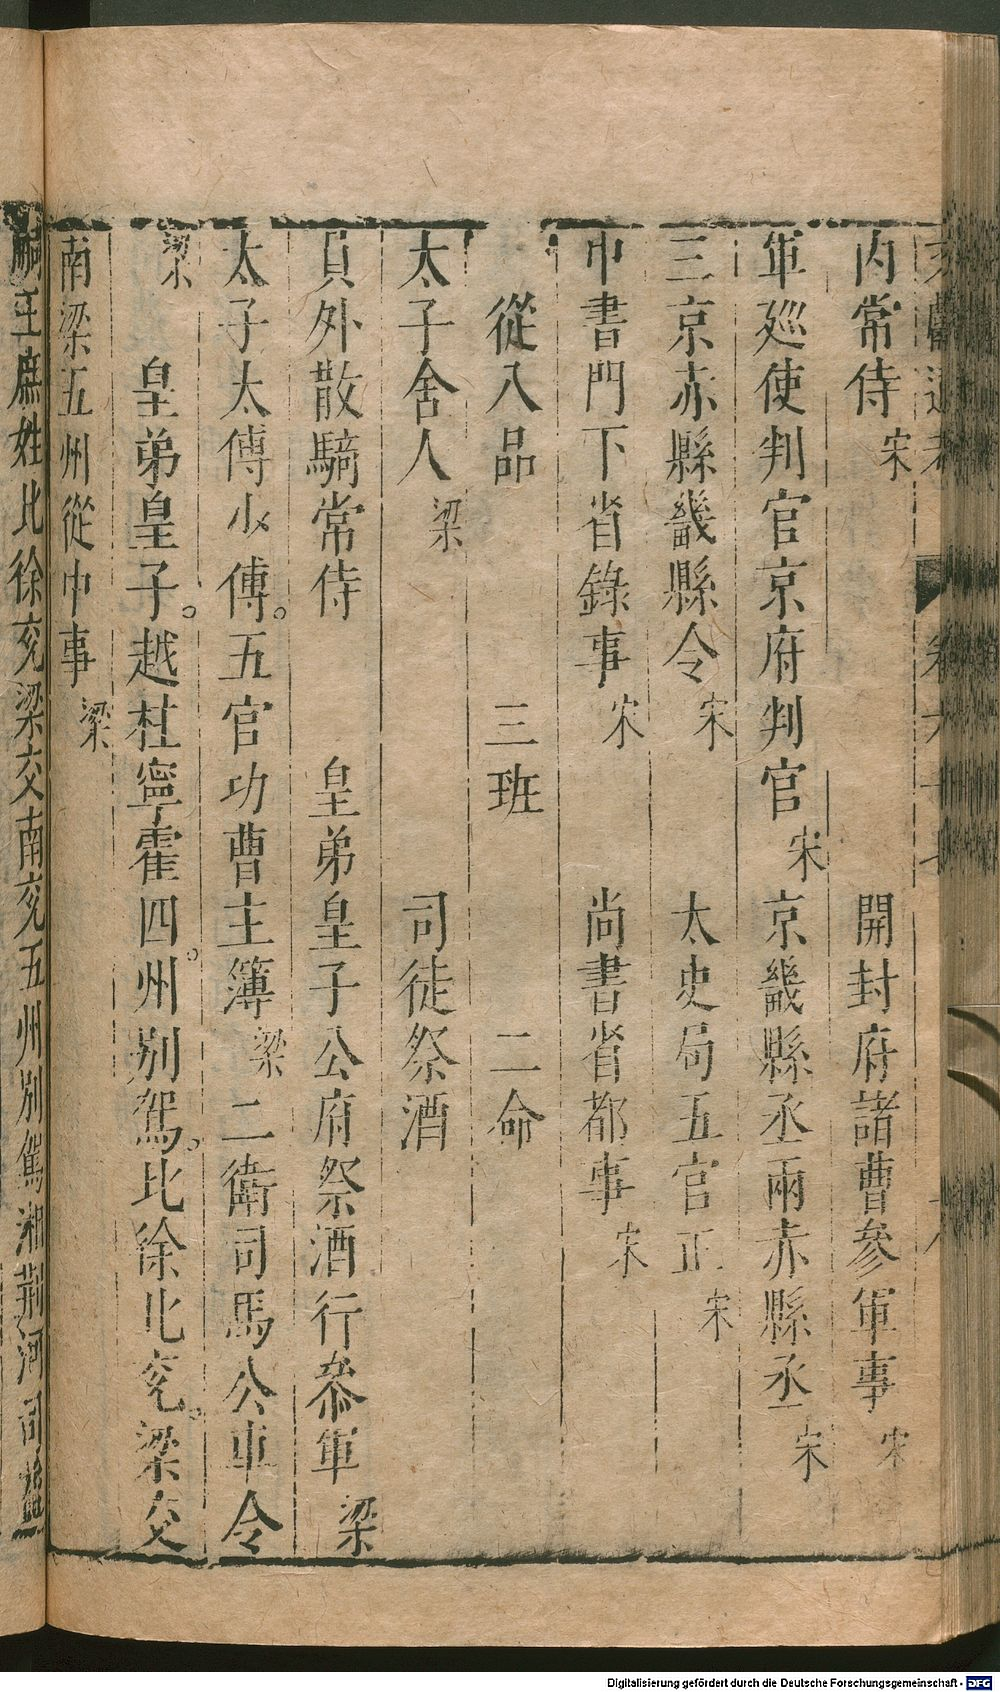 內常侍 宋 開封府諸曹參軍事 宋
軍廵使判官京府判官 宋 京畿縣丞兩赤縣丞 宋
三京赤縣畿縣令 宋 太史局五官正 宋
中書門下省錄事 宋 尚書省都事 宋
從八品 三班 二命
太子舍人 梁 司徒祭酒
員外散騎常侍 皇弟皇子公府祭酒行叅軍 梁
太子太傅少傅。五官功曹主簿 梁 二衛司馬公車令
梁 皇弟皇子。越桂寧霍四。州别駕。比徐北兖。梁交
南梁五州從中事 梁
嗣王庶姓比徐兖梁交南兖五州别駕湘荆河司益
Digitalisierung gefördert durch die Deutsche Forschungsgemeinschaft - DFG